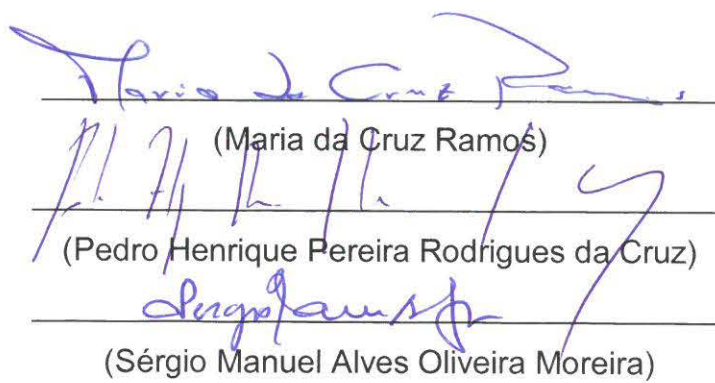 Maria da Cruz Ramos
(Maria da Cruz Ramos)
(Pedro Henrique Pereira Rodrigues da Cruz)
(Sérgio Manuel Alves Oliveira Moreira)